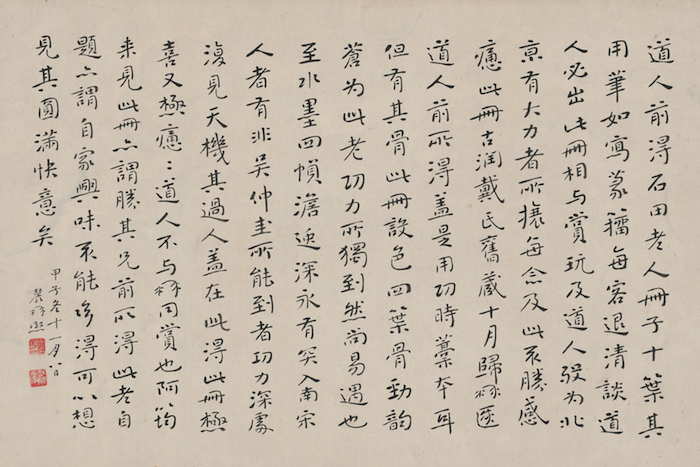 道人前得石田老人冊子十葉其
用筆如寫篆籀每客退清談道
人必出此冊相与賞玩及道人歿为北
京有大力者所攘每念及此不勝感
慨此冊吉润戴氏舊藏十月歸

道人前所得盖是用功時藁本耳
但有其骨此冊設色四葉骨勁韵
蒼为此老功力所獨到然尚易遇也
至水墨四幀澹逸深永有突入南宋
人者有非吴仲圭所能到者功力深處
復見天機其過人盖在此得此冊極
喜又極慨〻道人不与同賞也阿筠
来見此冊亦謂勝其兄前所得此老自
題亦謂自家興味不能多得可以想
見其圓滿快意矣
甲子冬十一月
農髯熙